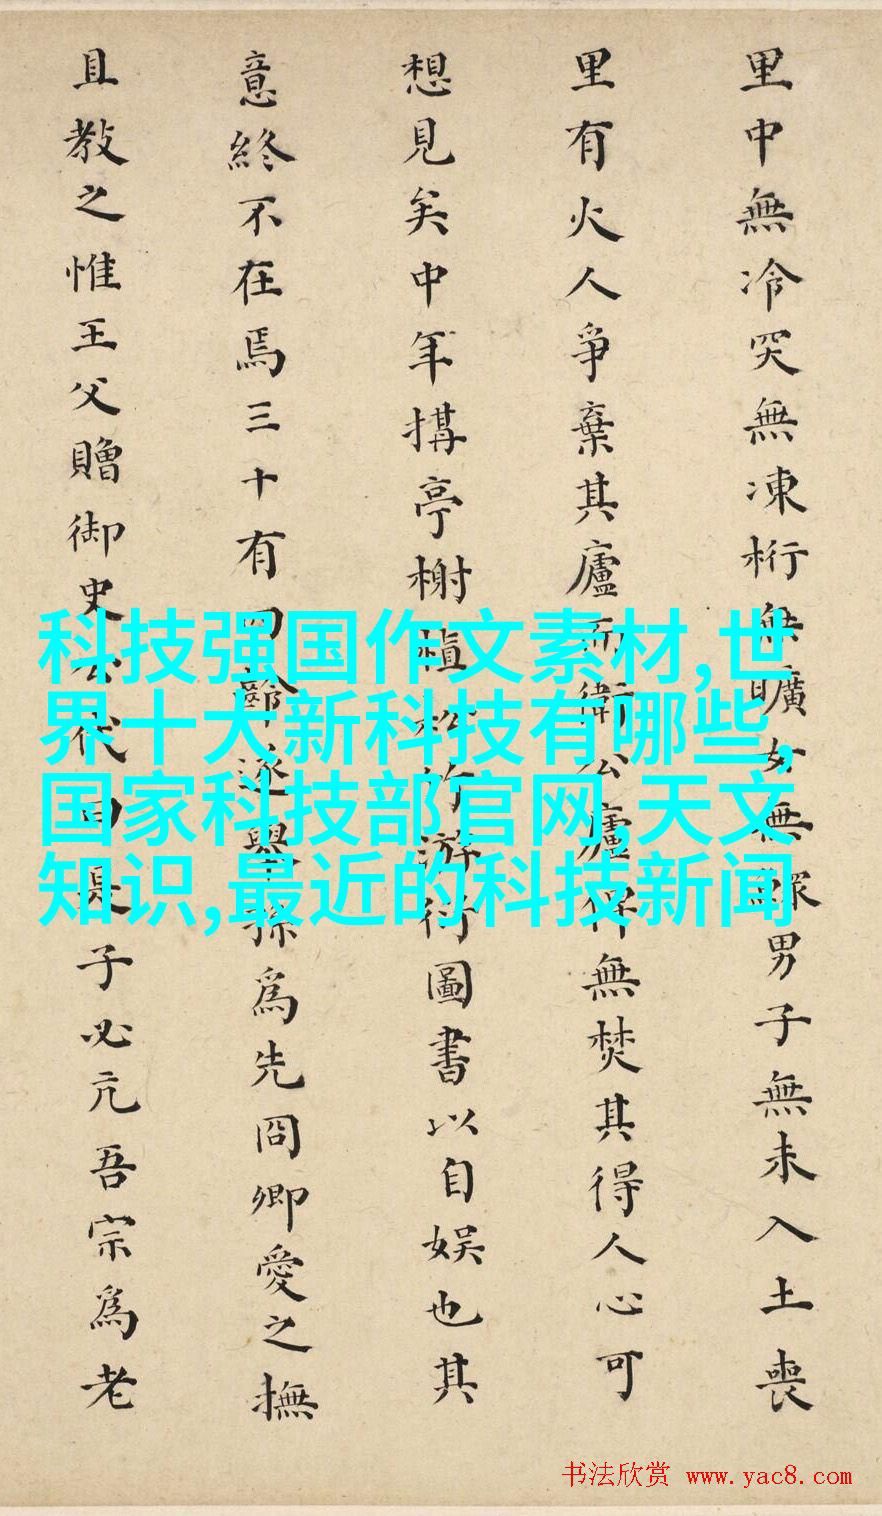 里中無冷突無凍桁無曠女無鰥男子無未入土喪
里有火人爭棄其廬而衛公廬俾無焚其得人心可
想見矣中年搆亭榭植松竹游衍圖書以自娛也其
意終不在焉三十有四齡逐舉孫爲先冏卿愛之撫
且教之惟王父贈御史公代曰是子必亢吾宗爲老
科技强国作文素材,世
界十大新科技有哪些,
国家科技部官网,天文
知识,最近的科技新闻
书法欣赏 www.yac8.com